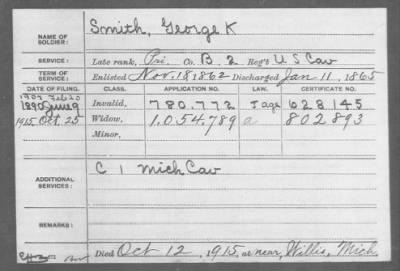 NAME OF SOLDIER: Smith, George K
SERVICE: Late rank, Pri. Co. B. 2 Reg't U S Cav
TERM OF SERVICE: Enlisted Nov. 18, 1862 Discharged Jan 11, 1865
DATE OF FILING. CLASS. APPLICATION NO. LAW. CERTIFICATE NO.
1907 Feb 20
1890 June 9 Invalid, 780.772 J age 628145
1915. Oct. 25 Widow, 1.054.789 a 802893
Minor,
ADDITIONAL SERVICES: C 1 Mich Cav
REMARKS:
Died Oct 12, 1915, at near, Willis, Mich.